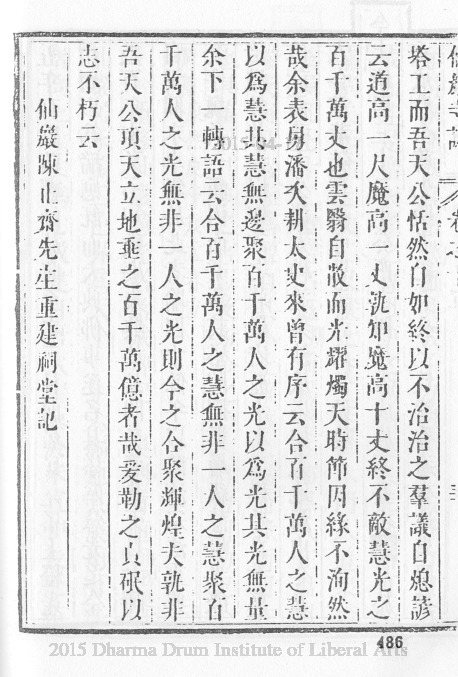 塔工而吾天公恬然自如終以不治治之羣議自熄諺
云道高一尺魔高一丈孰知魔高十丈終不敵慧光之
百千萬丈也雲翳自散而光耀燭天時節因緣不洵然
哉余表房潘次耕太史來曾有序云合百千萬人之慧
以爲慧其慧無邊聚百千萬人之光以爲光其光無量
余下一轉語云合百千萬人之慧無非一人之慧聚百
千萬人之光無非一人之光則今之合聚輝煌夫孰非
吾天公頂天立地垂之百千萬億者哉爰勒之貞珉以
志不朽云
仙巖陳止齋先生重建祠堂記
486
2015 Dharma Drum Institute of Liberal Arts